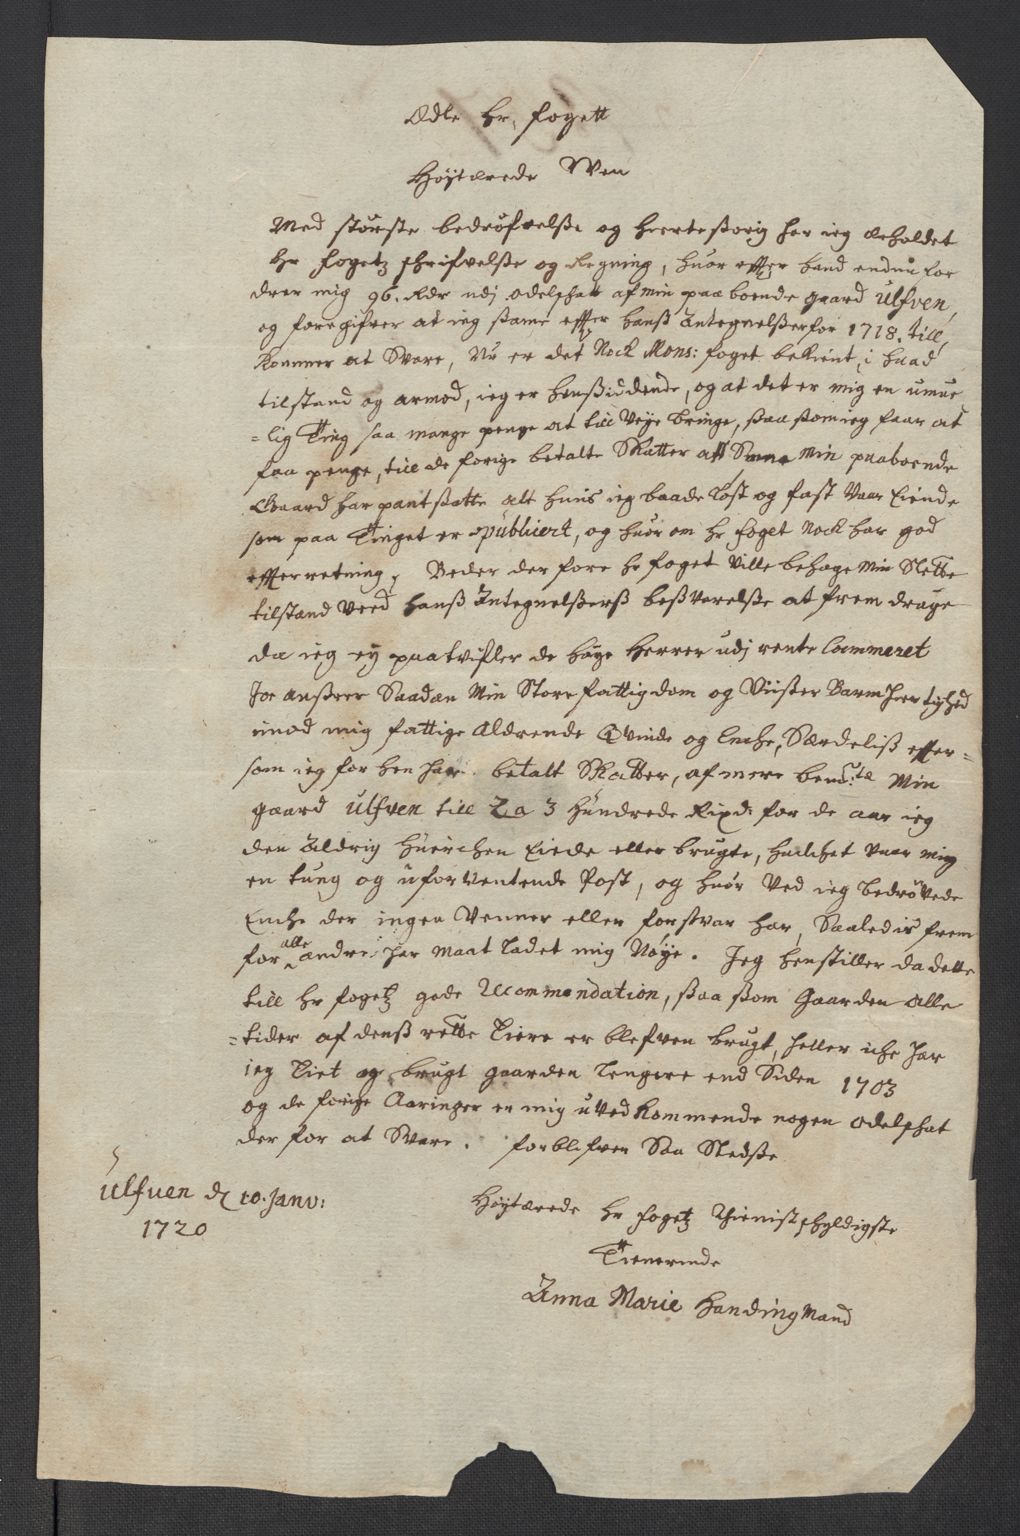 Ædle Hr, fogett
Høÿtærede Wen
Med största bedröfvelße og hierte ßorig har ieg beholdet
Hr fogetz schrifvelße og Regning, huor effter hand endnu for
drer mig 96. Rdr udj odelschatt af min paaboende gaard Ulfven,
og foregifver at ieg ßame effter hanß Antegnelßer for 1718. till
kommer at Svare, Nu er det Nock Mons: foget bekient, i huad
tilstand og armod, ieg er henßiddende, og at det er mig en umue
=lig Ting saa mange penge at till Veÿe bringe, ßaa ßom ieg faar at
faa penge, till de forige betalte Skatter aff Samme Min paaboende
Gaard har pantßatte alt huis ieg baade Løst og fast Vaar Eiende
som paa Tinget er publicert, og huor om hr foget Nock har god
effterretning, Beder der fore hr foget Ville behage Min Slette
tilstand Veed hanß Antegnelßerß beßvarelße at frem drage
da ieg eÿ paatvifler de høÿe Herrer udj rente Cammeret
Jo anßeer Saadan Min Store fattigdom og Viißer Barmhiertighed
imod mig fattige Aldrende Qvinde og Enche, Særdeliß effter=
som ieg for hen har betalt Skatter, af mere bem:te Min
gaard Ulfven till 2 a 3 Hundrede Rixd: for de aar ieg
den Aldrig huerchen Eiede eller brugte, huilchet Vaar mig
en tung og uforVentende Post, og huor Ved ieg bedrøvede
Enche der ingen Venner eller forsvar har, Saaledis frem
for alle andre har maat Ladet mig Nøÿe. Jeg henstiller da dette
till hr fogetz gode Recommendation, ßaa ßom Gaarden Alle
=tider af denß rette Eiere er blefven brugt, heller iche har
ieg Eiet og brugt gaarden Lengere end Siden 1703
og de forige Aaringer er mig uVedkommende nogen odelschat
der for at Svare. forblifver Saa Stedße
Ulfven d 10. Janv:
1720
Høÿtærede hr fogetz thienistschyldigste
Tienerinde
Anna Marie Handingmand